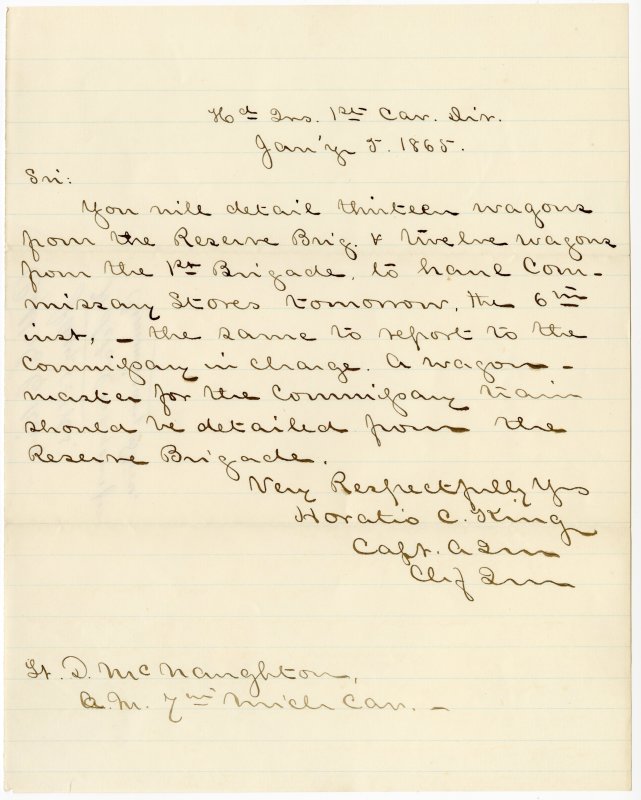 Hd Qrs. 1st Cav. Div.
Jan'y 5. 1865.
Sir:
You will detail thirteen wagons
from the Reserve Brig. & twelve wagons
from the 1st Brigade, to haul Com-
missary Stores tomorrow, the 6th
inst, – the same to report to the
Commissary in charge. A wagon-
master for the Commissary train
should be detailed from the
Reserve Brigade.
Very Respectfully Yrs
Horatio C. King
Capt. A Q m
Chf Q m
Lt. D. McNaughton,
Q.M. 7th Mich Cav. –